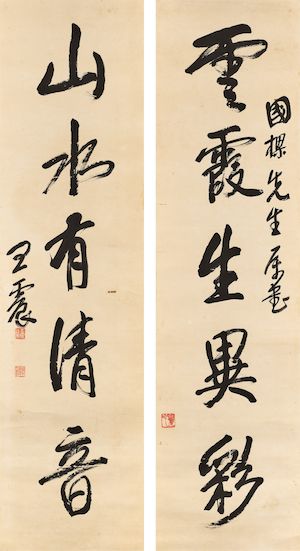 雲霞生異彩
國樑先生屬書
山水有清音
王震